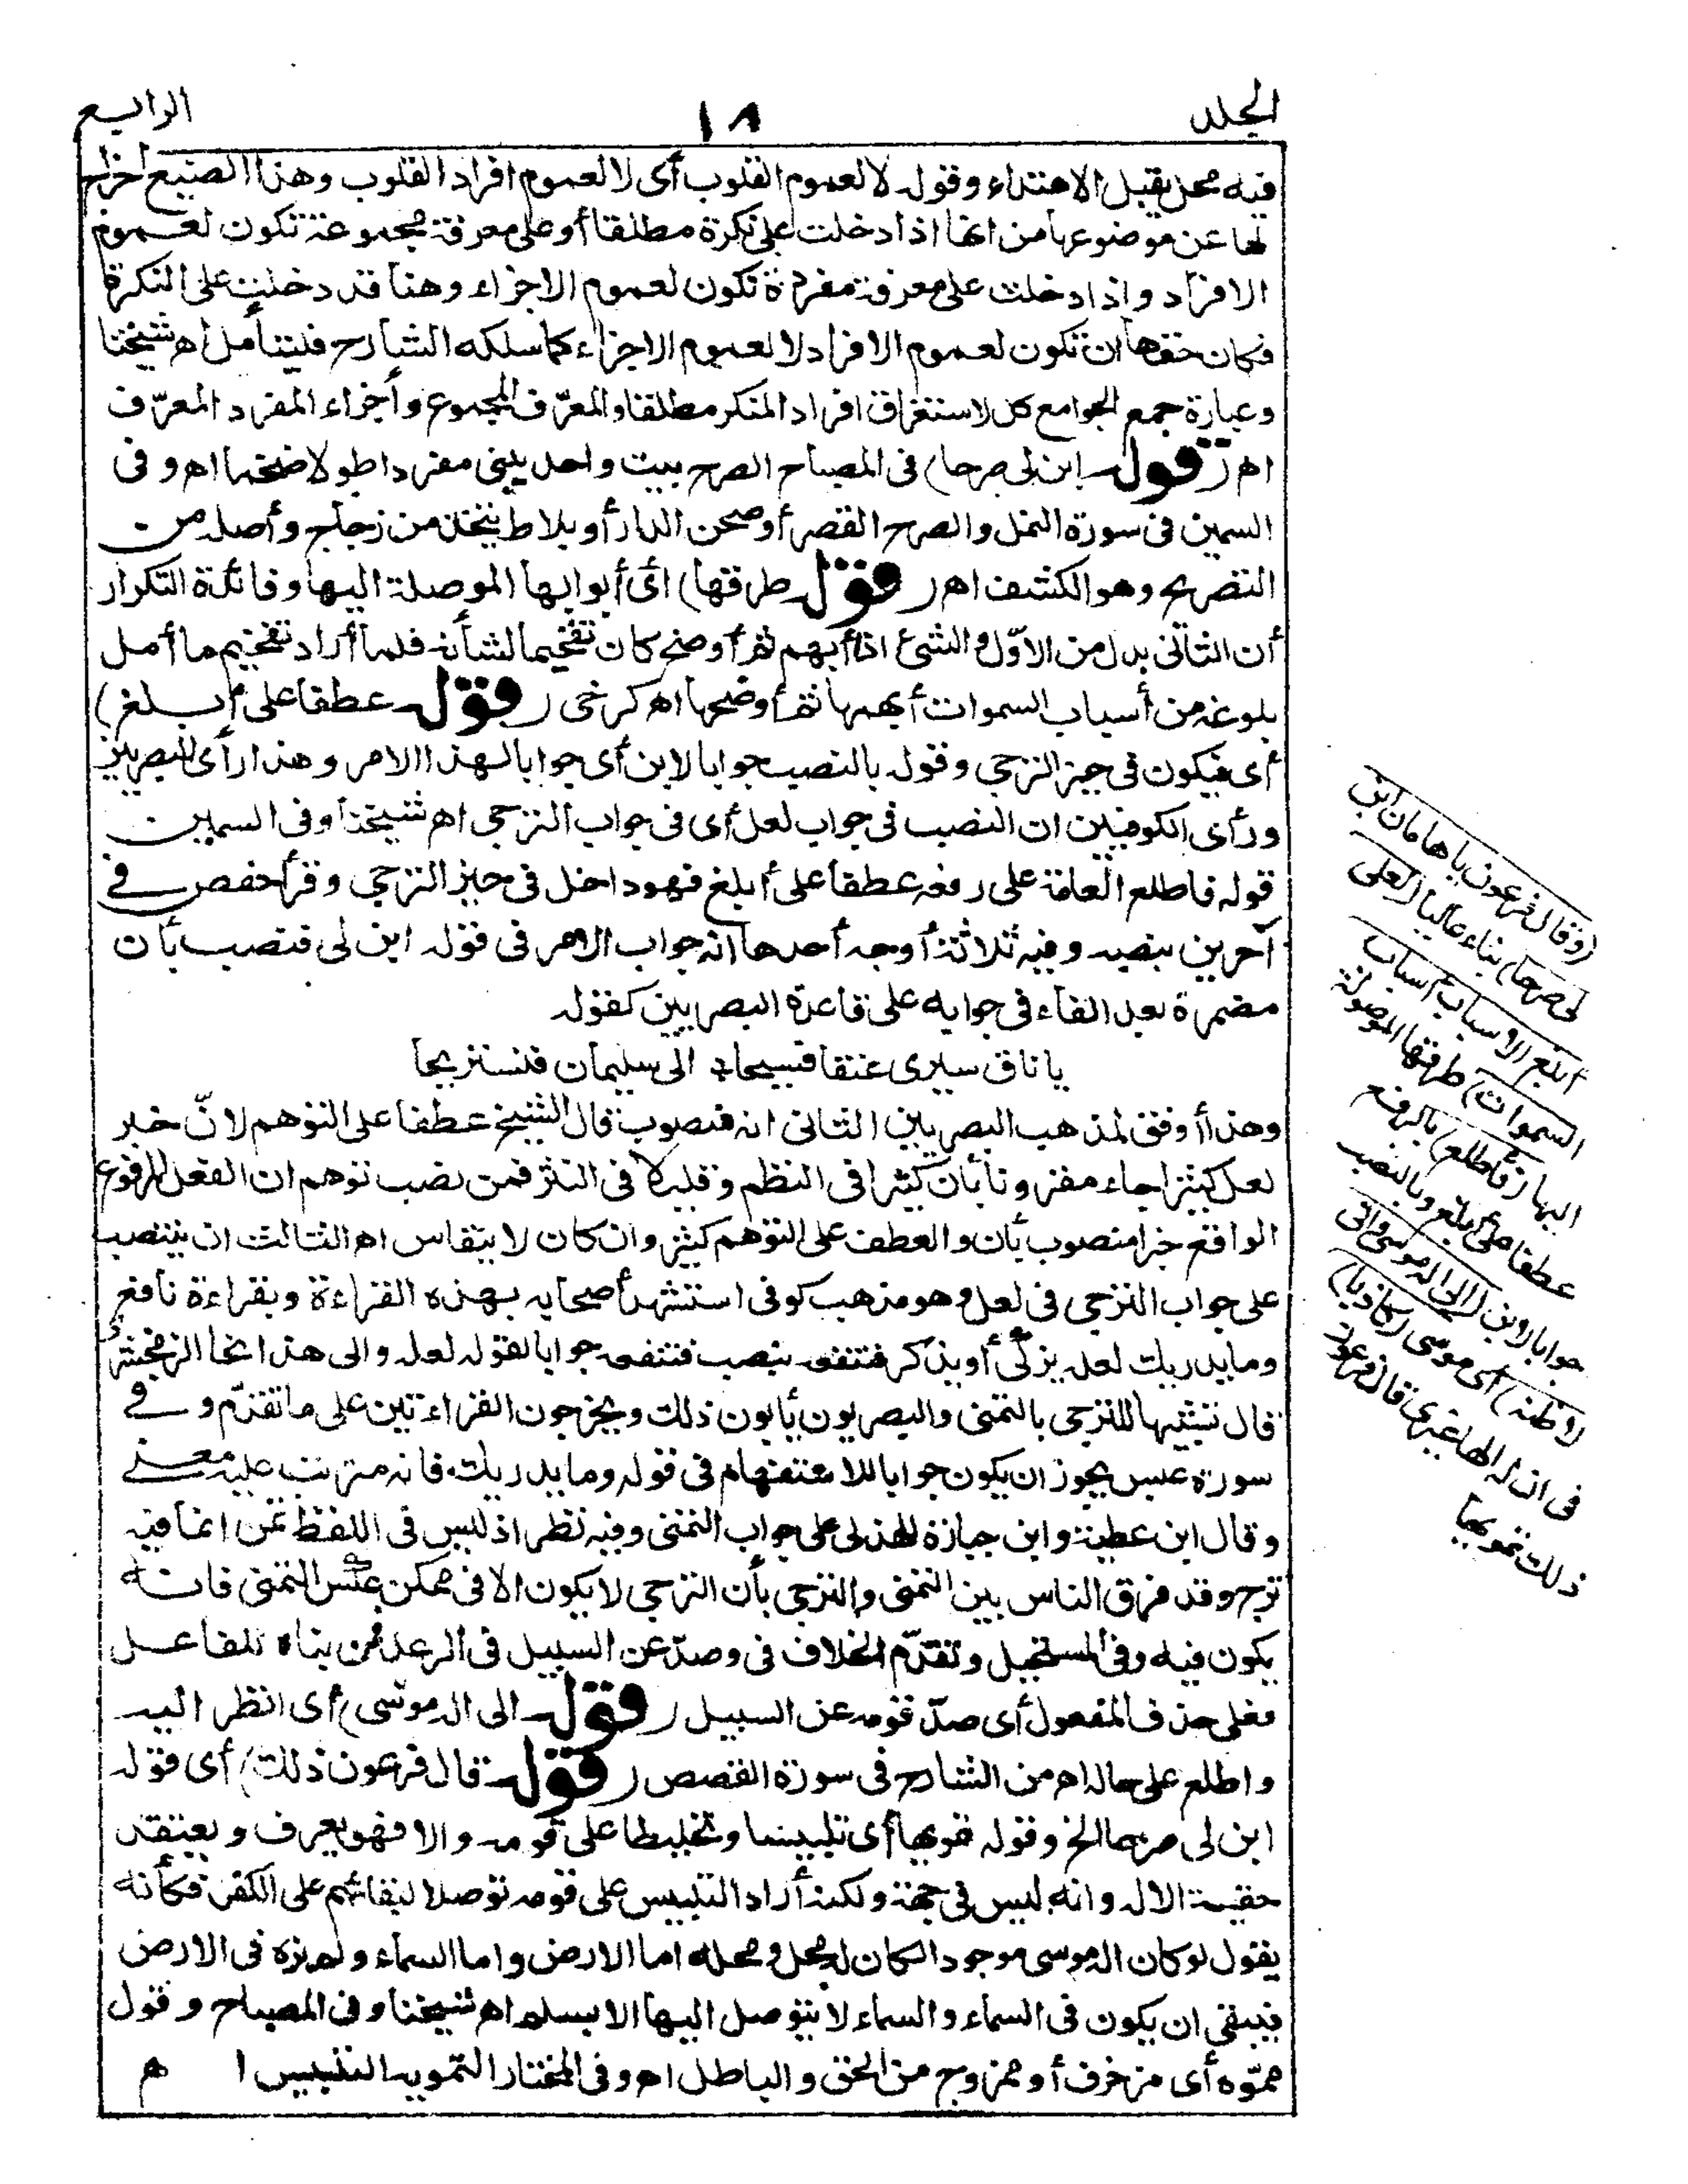 الجلد
١٨
الرابع
فيه محل يقبل الاهتداء وقوله لا لعموم القلوب أى لا لعموم افراد القلوب وهذا الصنيع اخراج
لها عن موضوعها من انها اذا دخلت على نكرة مطلقا أو على معرفة مجموعة تكون لعموم
الافراد واذا دخلت على معرفة مفردة تكون لعموم الاجزاء وهنا قد دخلت على النكرة
فكان حقها ان تكون لعموم الافراد لا لعموم الاجزاء كما سلكه الشارح فليتأمل اه شيخنا
وعبارة جمع الجوامع كل لاستغراق افراد المنكر مطلقا والمعرّف المجموع وأجزاء المفرد المعرّف
اه (قوله ابن لى صرحا) فى المصباح الصرح بيت واحد يبنى مفردا طولا ضخما اه وفى
السمين فى سورة النمل والصرح القصر أو صحن الدار أو بلاط يتخذ من زجاج وأصله من
التصريح وهو الكشف اه (قوله طرقها) اى أبوابها الموصلة اليها وفائدة التكرار
أن الثانى بدل من الاوّل والشئ اذا أبهم ثم أوضح كان تفخيما لشأنه فلما أراد تفخيم ما أمل
بلوغه من أسباب السموات أبهمها ثم أوضحها اه كرخى (قوله عطفا على أبلغ)
أى فيكون فى حيز الترجى وقوله بالنصب جوابا لابن أى جوابا لهذا الامر وهذا رأى البصريين
ورأى الكوفيين ان النصب فى جواب لعل أى فى جواب الترجى اه شيخنا وفى السمين
قوله فاطلع العامة على رفعه عطفا على أبلغ فهو داخل فى حيز الترجى وقرأ حفص فى
آخرين بنصبه وفيه ثلاثة أوجه أحدها انه جواب الامر فى قوله ابن لى فنصب بأن
مضمرة بعد الفاء فى جوابه على قاعدة البصريين كقوله
يا ناق سيرى عنقا فسيحا * الى سليمان فنستريحا
وهذا أوفق لمذهب البصريين الثانى انه منصوب قال الشيخ عطفا على التوهم لانّ خبر
لعل كثيرا جاء مقرونا بأن كثيرا فى النظم وقليلا فى النثر فمن نصب توهم ان الفعل المرفوع
الواقع خبرا منصوب بأن والعطف على التوهم كثير وان كان لا ينقاس اه الثالث ان ينتصب
على جواب الترجى فى لعل وهو مذهب كوفى استشهد أصحابه بهذه القراءة وبقراءة نافع
وما يدريك لعله يزكّى أو يذكر فتنفعه بنصب فتنفعه جوابا لقوله لعله والى هذا نحا الزمخشرى
قال تشبيها للترجى بالتمنى والبصريون يأبون ذلك ويخرجون القراءتين على ما تقدّم وفى
سورة عبس يجوز ان يكون جوابا للاستفهام فى قوله وما يدريك فانه مترتب عليه معنى
وقال ابن عطية وابن جبارة الهذلى على جواب التمنى وفيه نظر اذ ليس فى اللفظ تمن انما فيه
ترج وقد فرق الناس بين التمنى والترجى بأن الترجى لا يكون الا فى ممكن عكس التمنى فانه
يكون فيه وفى المستحيل وتقدّم الخلاف فى وصدّ عن السبيل فى الرعد فمن بناه للفاعل
فعلى حذف المفعول أى صدّ قومه عن السبيل (قوله الى اله موسى) أى انظر اليه
واطلع على حاله اه من الشارح فى سورة القصص (قوله قال فرعون ذلك) أى قوله
ابن لى صرحا الخ وقوله تمويها أى تلبيسا وتخليطا على قومه والا فهو يعرف ويعتقد
حقية الاله وانه ليس فى جهة ولكنه أراد التلبيس على قومه توصلا لبقائهم على الكفر فكأنه
يقول لو كان اله موسى موجودا لكان له محل ومحله اما الارض واما السماء ولم نره فى الارض
فيبقى ان يكون فى السماء والسماء لا يتوصل اليها الا بسلم اه شيخنا وفى المصباح وقول
مموّه أى مزخرف أو ممزوج من الحق والباطل اه وفى المختار التمويه التلبيس اه
(وقال فرعون يا هامان ابن
لى صرحا) بناء عاليا (لعلى
أبلغ الاسباب أسباب
السموات) طرقها الموصولة
اليها (فأطلع) بالرفع
عطفا على أبلغ وبالنصب
جوابا لابن (الى اله موسى وانى
لاظنه) أى موسى (كاذبا)
فى ان له الها غيرى قال فرعون
ذلك تمويها